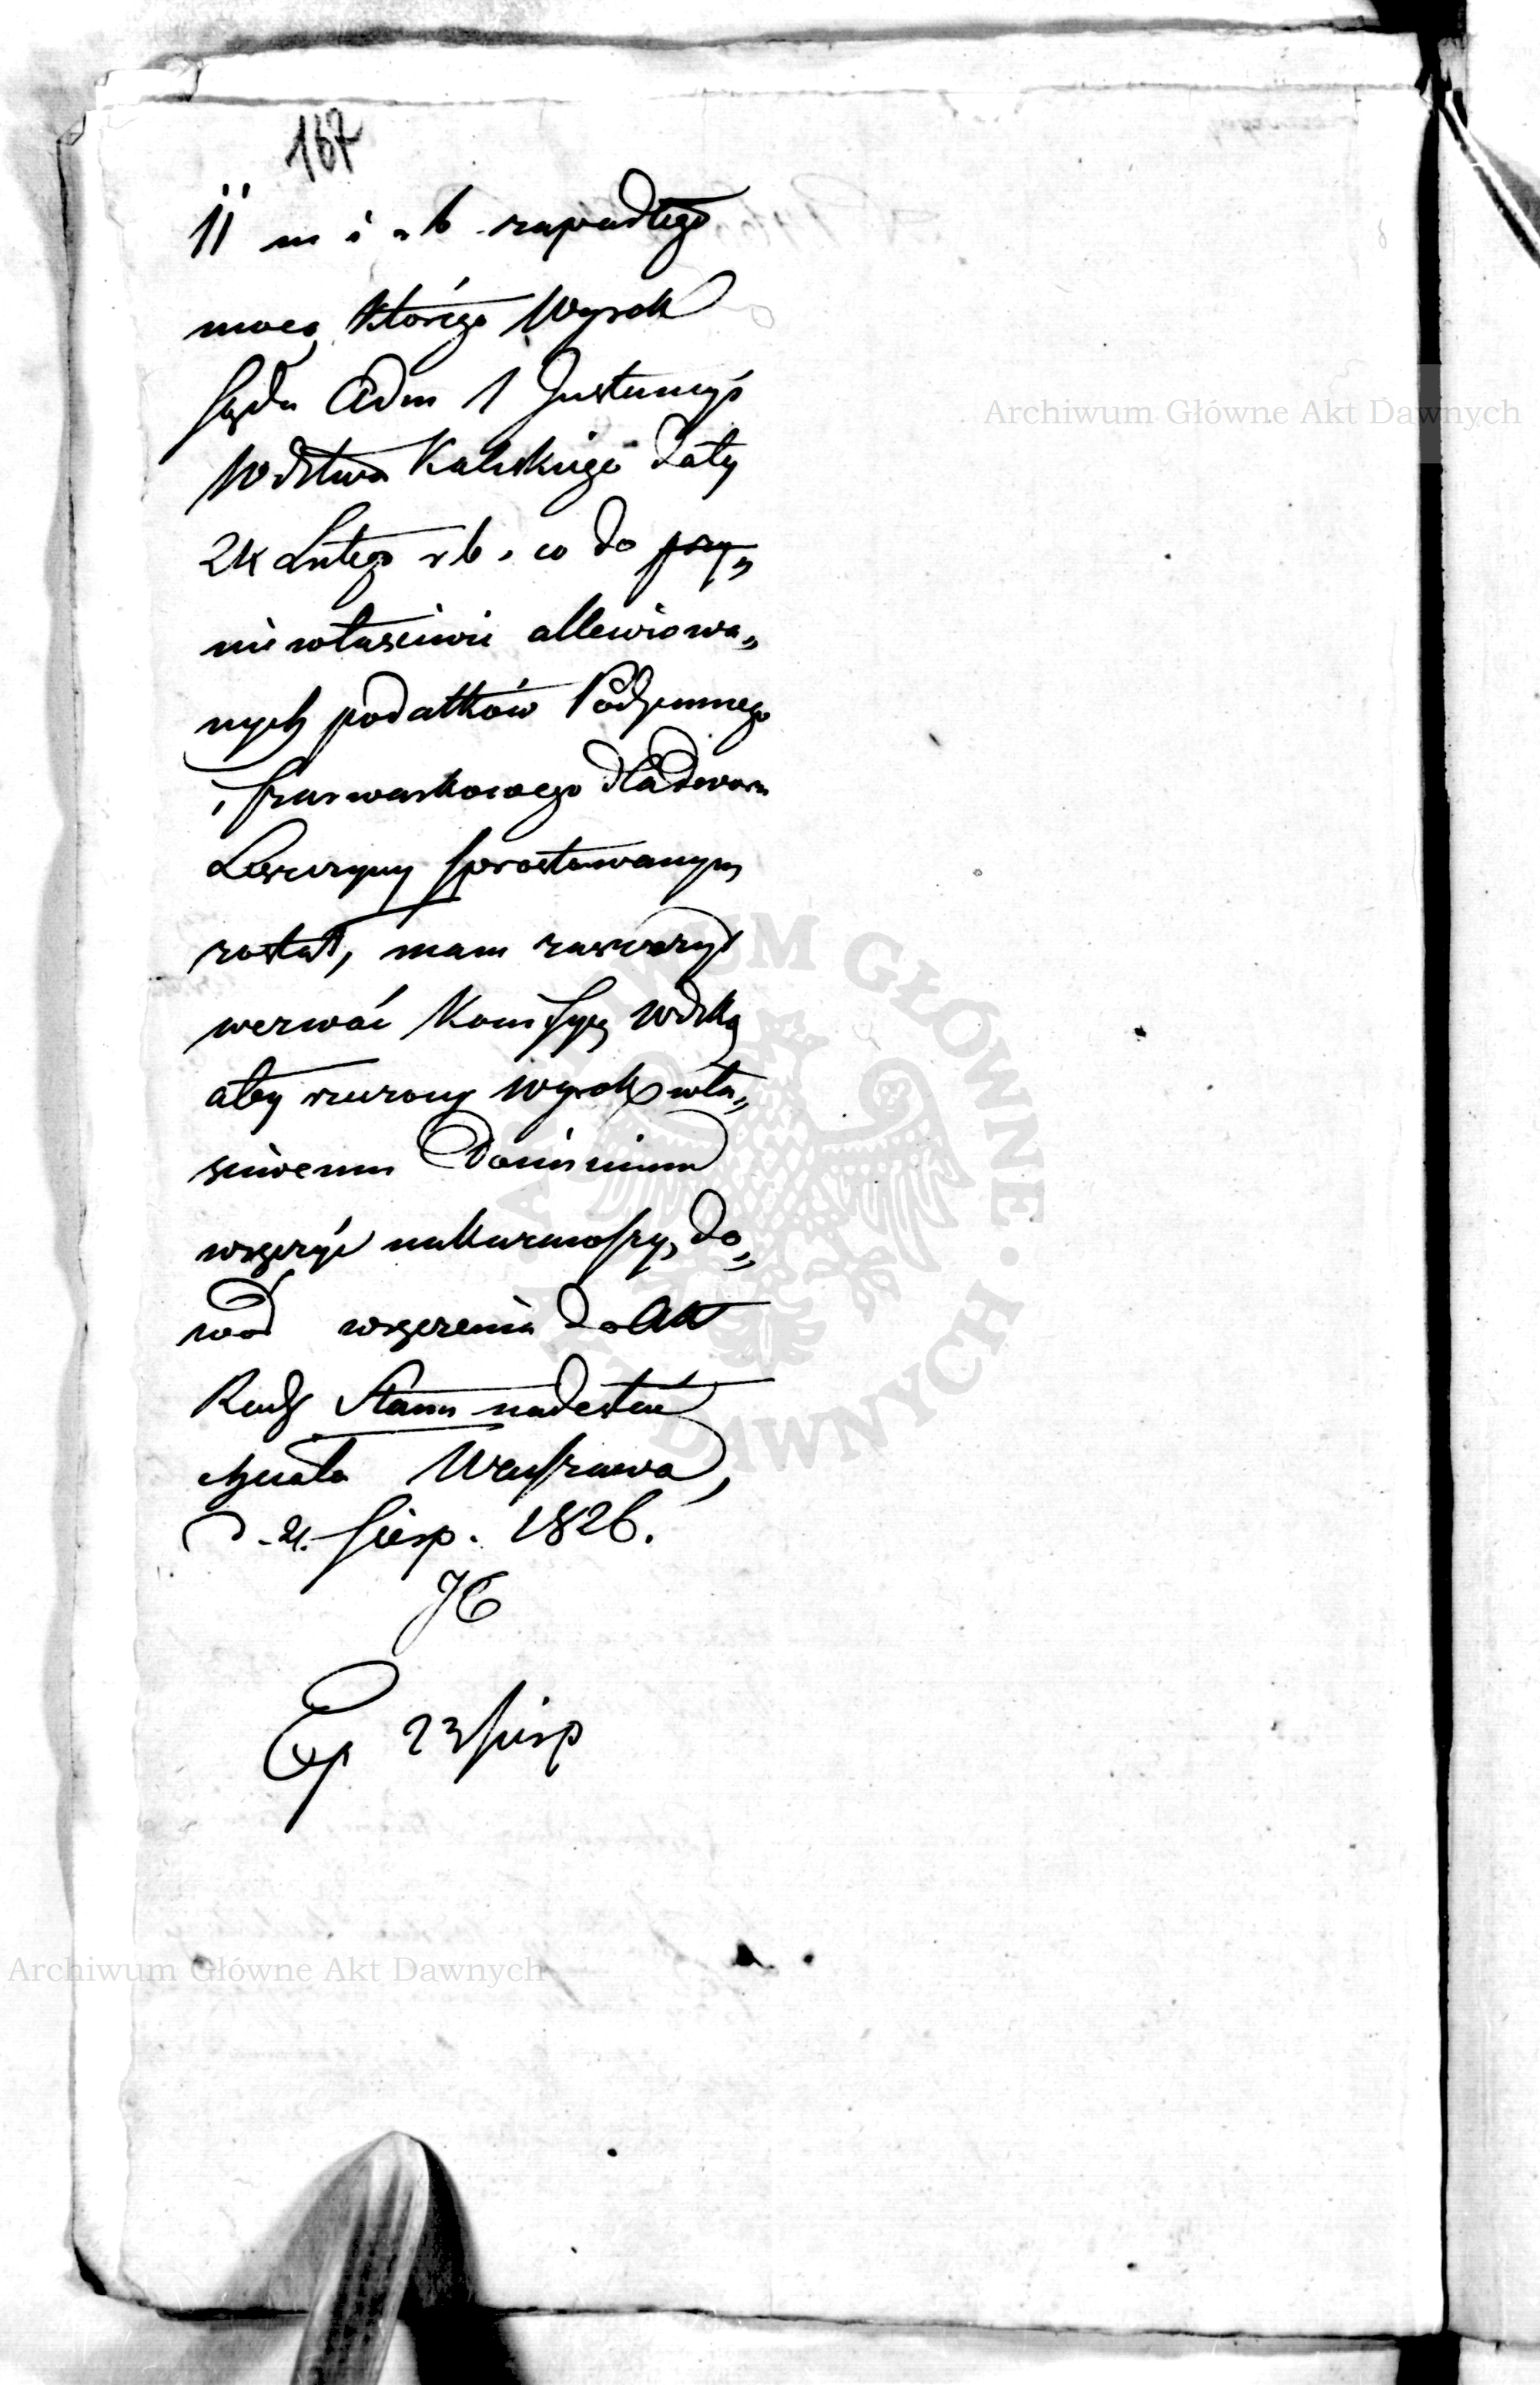 167
11 m i rb zapadłego
mocą którego Wyrok
Sądu Adm 1 Instancyi
Wdztwa Kaliskiego daty
24 Lutego rb. co do
niewłasciwie allewiowa„
nych podatków Podymnego
i Szarwarkowego dla dworu
sprostowanym
został, mam zaszczyt
wezwać Komissyą Wdzką
aby rzeczony Wyrok wła„
sciwemu Dominium
wręczyć nakazawszy, do„
wód wręczenia do Akt
Rady Stanu nadesłać
chciała Warszawa,
d. 21. Sierp. 1826.
Exp 23 Sierp
Archiwum Główne Akt Dawnych
Archiwum Główne Akt Dawnych
ARCHIWUM GŁÓWNE · AKT DAWNYCH ·